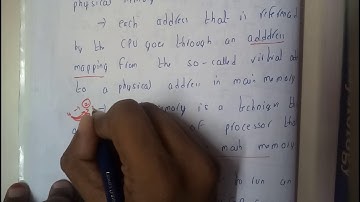 physical memory
→ each address that is referenced
by the CPU goes through an adddress
mapping from the so-called virtual ad
to a physical address in main memory
is a technique
of processor tha
memory
to run an